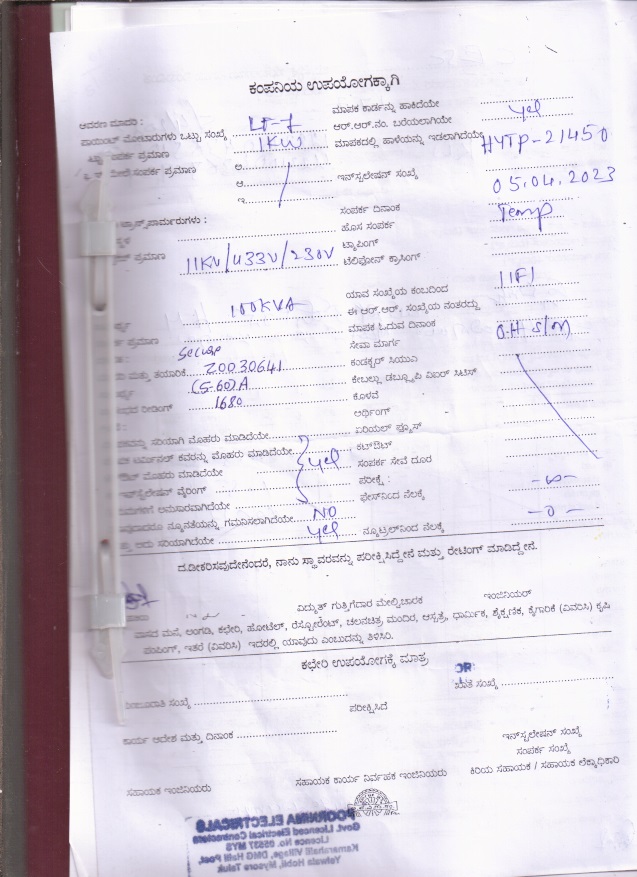 ಕಂಪನಿಯ ಉಪಯೋಗಕ್ಕಾಗಿ
ಆವರಣ ಮಾದರಿ : LT-7 ಮಾಪಕ ಕಾರ್ಡನ್ನು ಹಾಕಿದೆಯೇ
ಪಾಯಿಂಟ್ ಮೋಟಾರುಗಳು ಒಟ್ಟು ಸಂಖ್ಯೆ 1KW ಆರ್.ಆರ್.ನಂ. ಬರೆಯಲಾಗಿಯೇ Yel
ಸಂಪರ್ಕ ಪ್ರಮಾಣ ಅ. ಮಾಪಕದಲ್ಲಿ ಹಾಳೆಯನ್ನು ಇಡಲಾಗಿದೆಯೇ HYTP-21450
ಸಂಪರ್ಕ ಪ್ರಮಾಣ ಆ. ಇನ್‌ಸ್ಟಲೇಷನ್ ಸಂಖ್ಯೆ 05.04.2023
ಇ.
ಟ್ರಾನ್ಸ್‌ಫಾರ್ಮರುಗಳು : ಸಂಪರ್ಕ ದಿನಾಂಕ Temp
ಸ್ಥಳ ಹೊಸ ಸಂಪರ್ಕ
ಪ್ರಮಾಣ 11KV/433V/230V ಟ್ಯಾಪಿಂಗ್
ಟೆಲಿಫೋನ್ ಕ್ರಾಸಿಂಗ್
ಯಾವ ಸಂಖ್ಯೆಯ ಕಂಬದಿಂದ 11F1
100KVA ಈ ಆರ್.ಆರ್. ಸಂಖ್ಯೆಯ ನಂತರದ್ದು
ಪ್ರಮಾಣ ಮಾಪಕ ಓದುವ ದಿನಾಂಕ
Secure ಸೇವಾ ಮಾರ್ಗ O.H S/M
ಮತ್ತು ತಯಾರಿಕೆ Z0030641 ಕಂಡಕ್ಟರ್ ಸಿಯುಎ
(5-60)A ಕೇಬಲ್ಲು ಡಬ್ಲ್ಯೂಪಿ ವಿಐಆರ್ ಸಿಟಿಸ್
ರೀಡಿಂಗ್ 1680 ಕೊಳವೆ
ಅರ್ಥಿಂಗ್
ಸರಿಯಾಗಿ ಮೊಹರು ಮಾಡಿದೆಯೇ ಏರಿಯಲ್ ಫ್ಯೂಸ್
ಟರ್ಮಿನಲ್ ಕವರನ್ನು ಮೊಹರು ಮಾಡಿದೆಯೇ Yel ಕಟ್‌ಔಟ್
ಮೊಹರು ಮಾಡಿದೆಯೇ ಸಂಪರ್ಕ ಸೇವೆ ದೂರ
ಇನ್‌ಸ್ಟಲೇಷನ್ ವೈರಿಂಗ್ ಪರೀಕ್ಷೆ :
ಅನುಸಾರವಾಗಿದೆಯೇ ಫೇಸ್‌ನಿಂದ ನೆಲಕ್ಕೆ -∞-
ನ್ಯೂನತೆಯನ್ನು ಗಮನಿಸಲಾಗಿದೆಯೇ NO
ಅದು ಸರಿಯಾಗಿದೆಯೇ Yel ನ್ಯೂಟ್ರಲ್‌ನಿಂದ ನೆಲಕ್ಕೆ -0-
ದೃಢೀಕರಿಸುವುದೇನೆಂದರೆ, ನಾನು ಸ್ಥಾವರವನ್ನು ಪರೀಕ್ಷಿಸಿದ್ದೇನೆ ಮತ್ತು ರೇಟಿಂಗ್ ಮಾಡಿದ್ದೇನೆ.
ವಿದ್ಯುತ್ ಗುತ್ತಿಗೆದಾರ ಮೇಲ್ವಿಚಾರಕ ಇಂಜಿನಿಯರ್
ವಾಸದ ಮನೆ, ಅಂಗಡಿ, ಕಛೇರಿ, ಹೋಟೆಲ್, ರೆಸ್ಟೋರೆಂಟ್, ಚಲನಚಿತ್ರ ಮಂದಿರ, ಆಸ್ಪತ್ರೆ, ಧಾರ್ಮಿಕ, ಶೈಕ್ಷಣಿಕ, ಕೈಗಾರಿಕೆ (ವಿವರಿಸಿ) ಕೃಷಿ
ಪಂಪಿಂಗ್, ಇತರೆ (ವಿವರಿಸಿ) ಇದರಲ್ಲಿ ಯಾವುದು ಎಂಬುದನ್ನು ತಿಳಿಸಿರಿ.
ಕಛೇರಿ ಉಪಯೋಗಕ್ಕೆ ಮಾತ್ರ
ಸಂಖ್ಯೆ ಖಾತೆ ಸಂಖ್ಯೆ
ಪರೀಕ್ಷಿಸಿದೆ
ಕಾರ್ಯ ಆದೇಶ ಮತ್ತು ದಿನಾಂಕ
ಇನ್‌ಸ್ಟಲೇಷನ್ ಸಂಖ್ಯೆ
ಸಂಪರ್ಕ ಸಂಖ್ಯೆ
ಸಹಾಯಕ ಇಂಜಿನಿಯರು ಸಹಾಯಕ ಕಾರ್ಯ ನಿರ್ವಾಹಕ ಇಂಜಿನಿಯರು ಕಿರಿಯ ಸಹಾಯಕ / ಸಹಾಯಕ ಲೆಕ್ಕಾಧಿಕಾರಿ
POORNIMA ELECTRICALS
Govt. Licenced Electrical Contractors
Licence No. 05537 MYS
Kamarahalli Village, DMG Halli Post,
Yelwala Hobli, Mysore Taluk